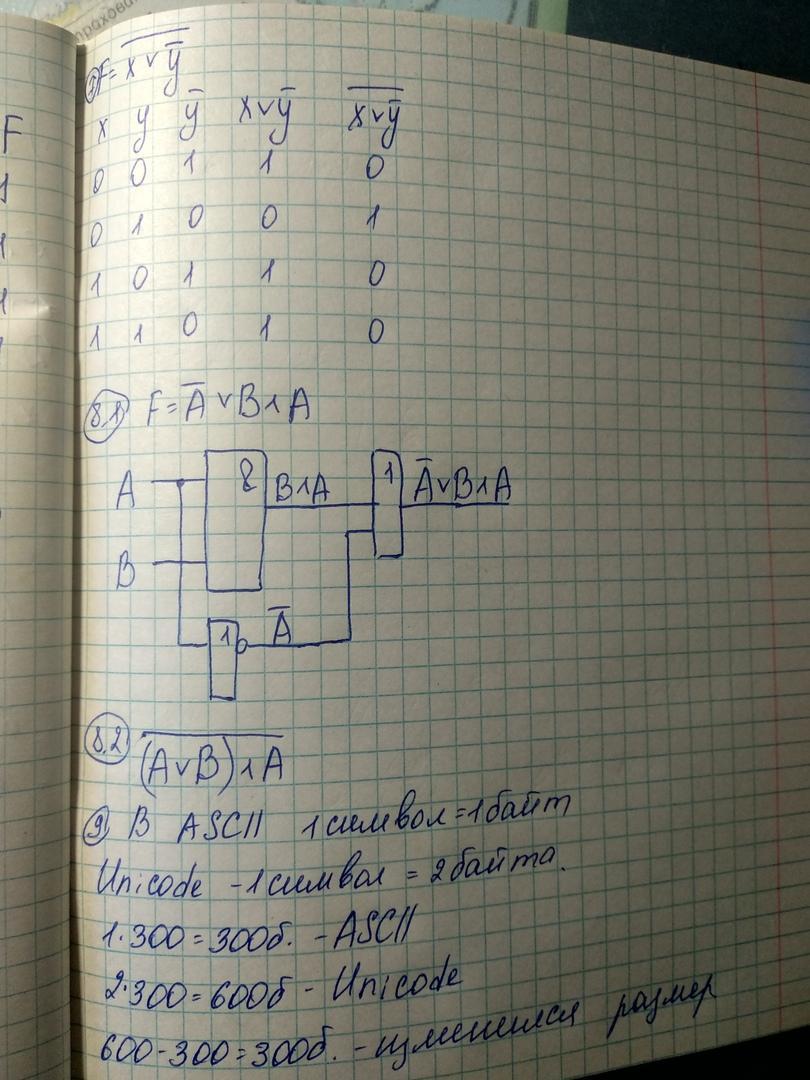 F
1
1
1
1
③ F = \overline{x ∨ \overline{y}}
x y \overline{y} x∨\overline{y} \overline{x∨\overline{y}}
0 0 1 1 0
0 1 0 0 1
1 0 1 1 0
1 1 0 1 0
8.1 F = \overline{A} ∨ B ∧ A
A & B∧A 1 \overline{A}∨B∧A
B
1 \overline{A}
8.2 \overline{(A∨B)∧A}
9 В ASCII 1 символ = 1 байт
Unicode - 1 символ = 2 байта.
1·300 = 300б. - ASCII
2·300 = 600б - Unicode
600 - 300 = 300б. - изменился размер